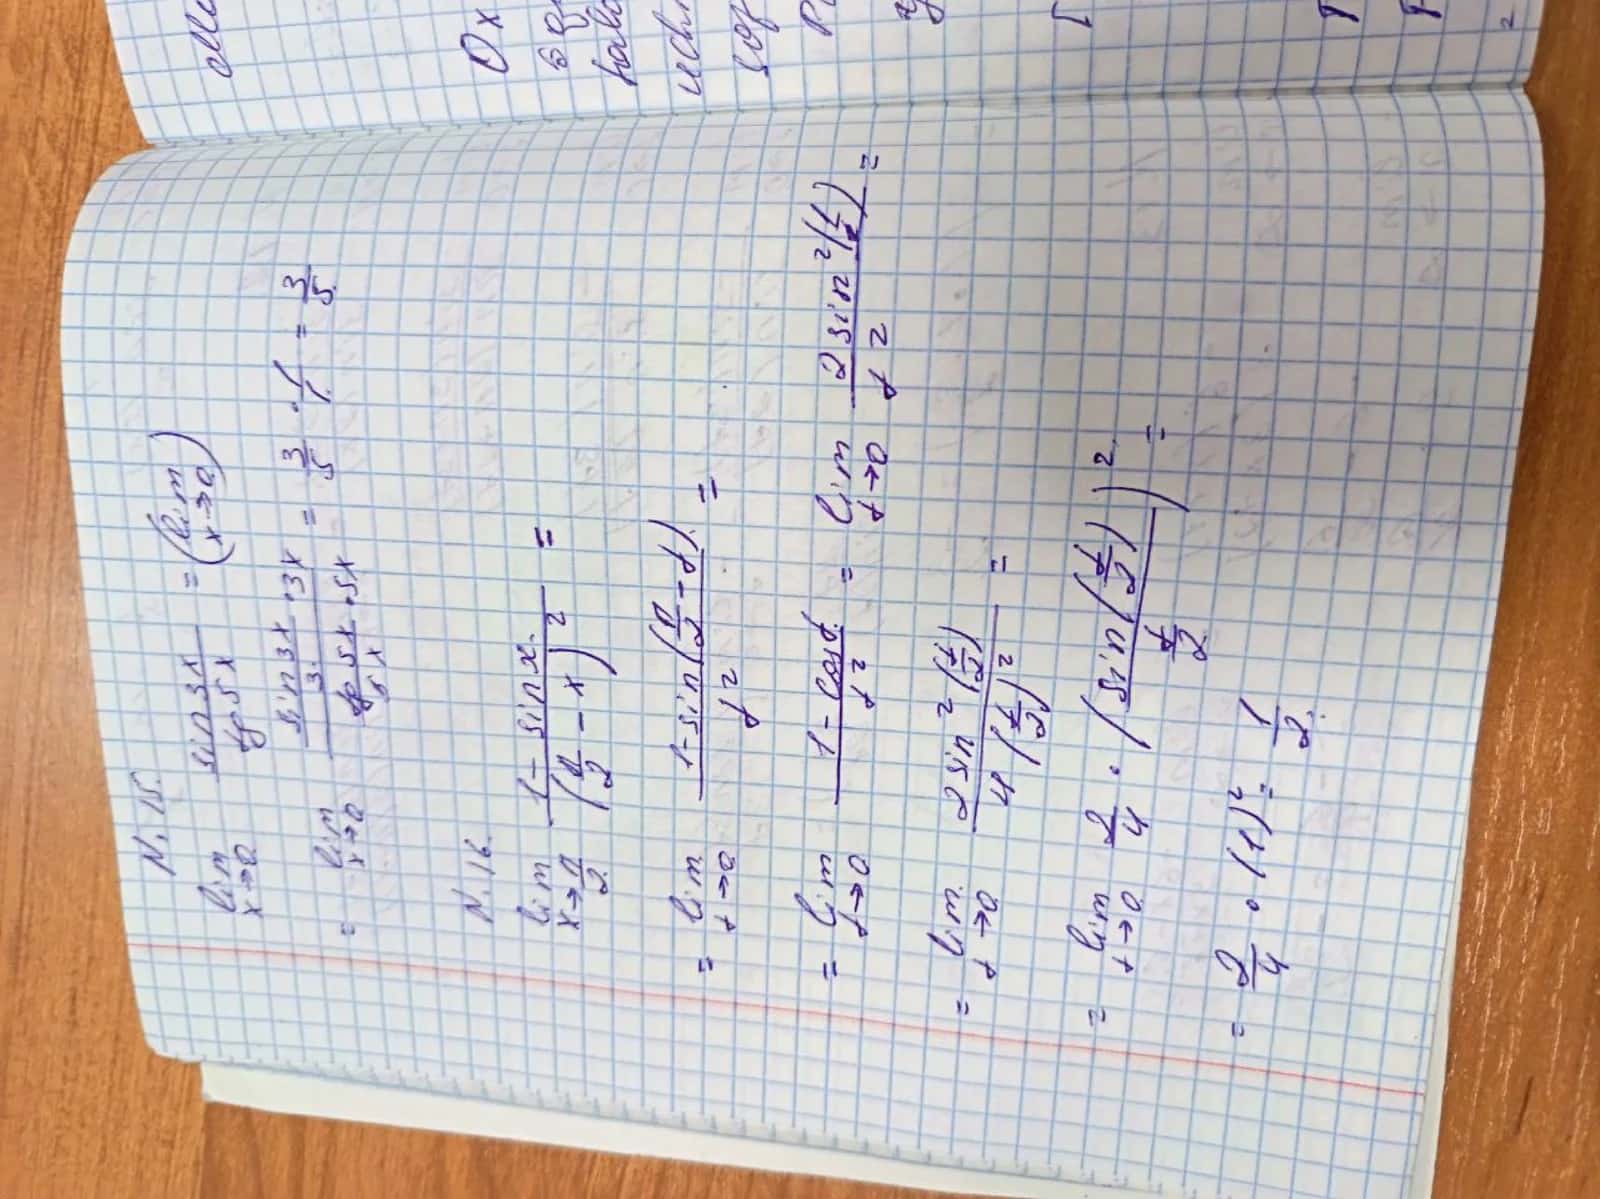 N. 15.
lim x→0 sin3x / tg5x = (lim x→0)
= lim x→0 (sin3x / 3x · 3x) / (tg5x / 5x · 5x) = 3/5 · 1/1 = 3/5.
N. 16.
lim x→π/2 (1 - sin x) / (π/2 - x)² =
= lim t→0 (1 - sin(π/2 - t)) / t² =
= lim t→0 (1 - cos t) / t² = lim t→0 2 sin²(t/2) / t² =
= lim t→0 2 sin²(t/2) / 4(t/2)² =
= lim t→0 2/4 · (sin(t/2) / t/2)² =
= 2/4 · (1)² = 1/2.